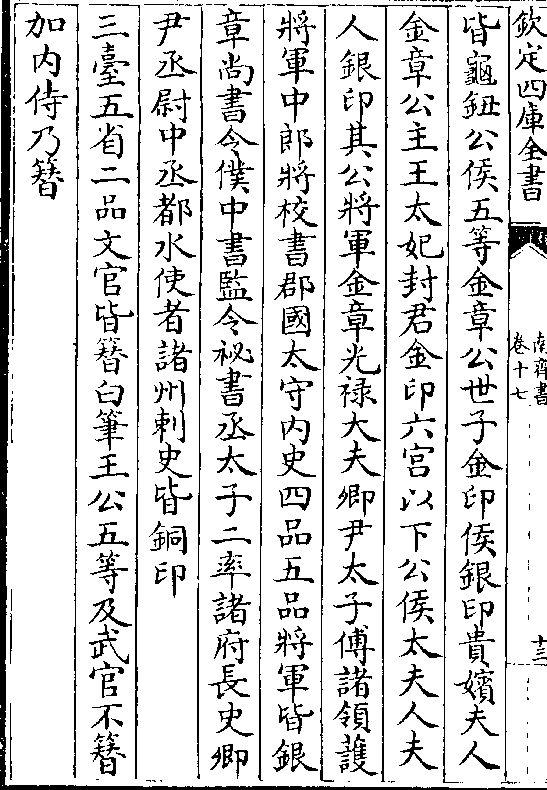 欽定四庫全書
南齊書
卷十七
十三
皆龜鈕公侯五等金章公世子金印侯銀印貴嬪夫人
金章公主王太妃封君金印六宮以下公侯太夫人夫
人銀印其公將軍金章光禄大夫卿尹太子傅諸領護
將軍中郎將校書郡國太守内史四品五品將軍皆銀
章尚書令僕中書監令祕書丞太子二率諸府長史卿
尹丞尉中丞都水使者諸州刺史皆銅印
三臺五省二品文官皆簪白筆王公五等及武官不簪
加内侍乃簪